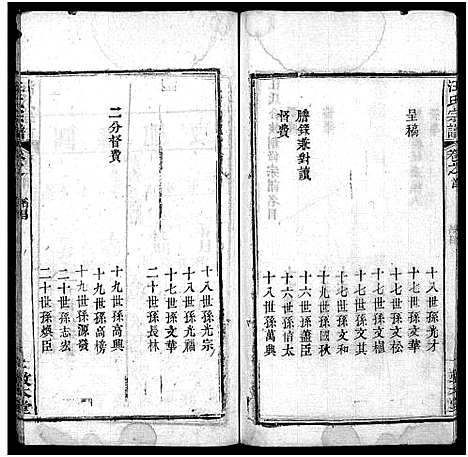 汪氏宗譜
卷之首
呈稿
十八世孫光才
十七世孫文榜
十七世孫文松
十七世孫文樌
十七世孫文其
謄錄兼對讀
十七世孫文和
十九世孫國秋
督費
十六世孫盡臣
十六世孫倍太
十八世孫萬典
十八世孫光宗
十八世孫光福
十七世孫文華
二十世孫長林
二分督費
十九世孫高興
十九世孫高榜
十九世孫源發
二十世孫志宏
二十世孫煥臣